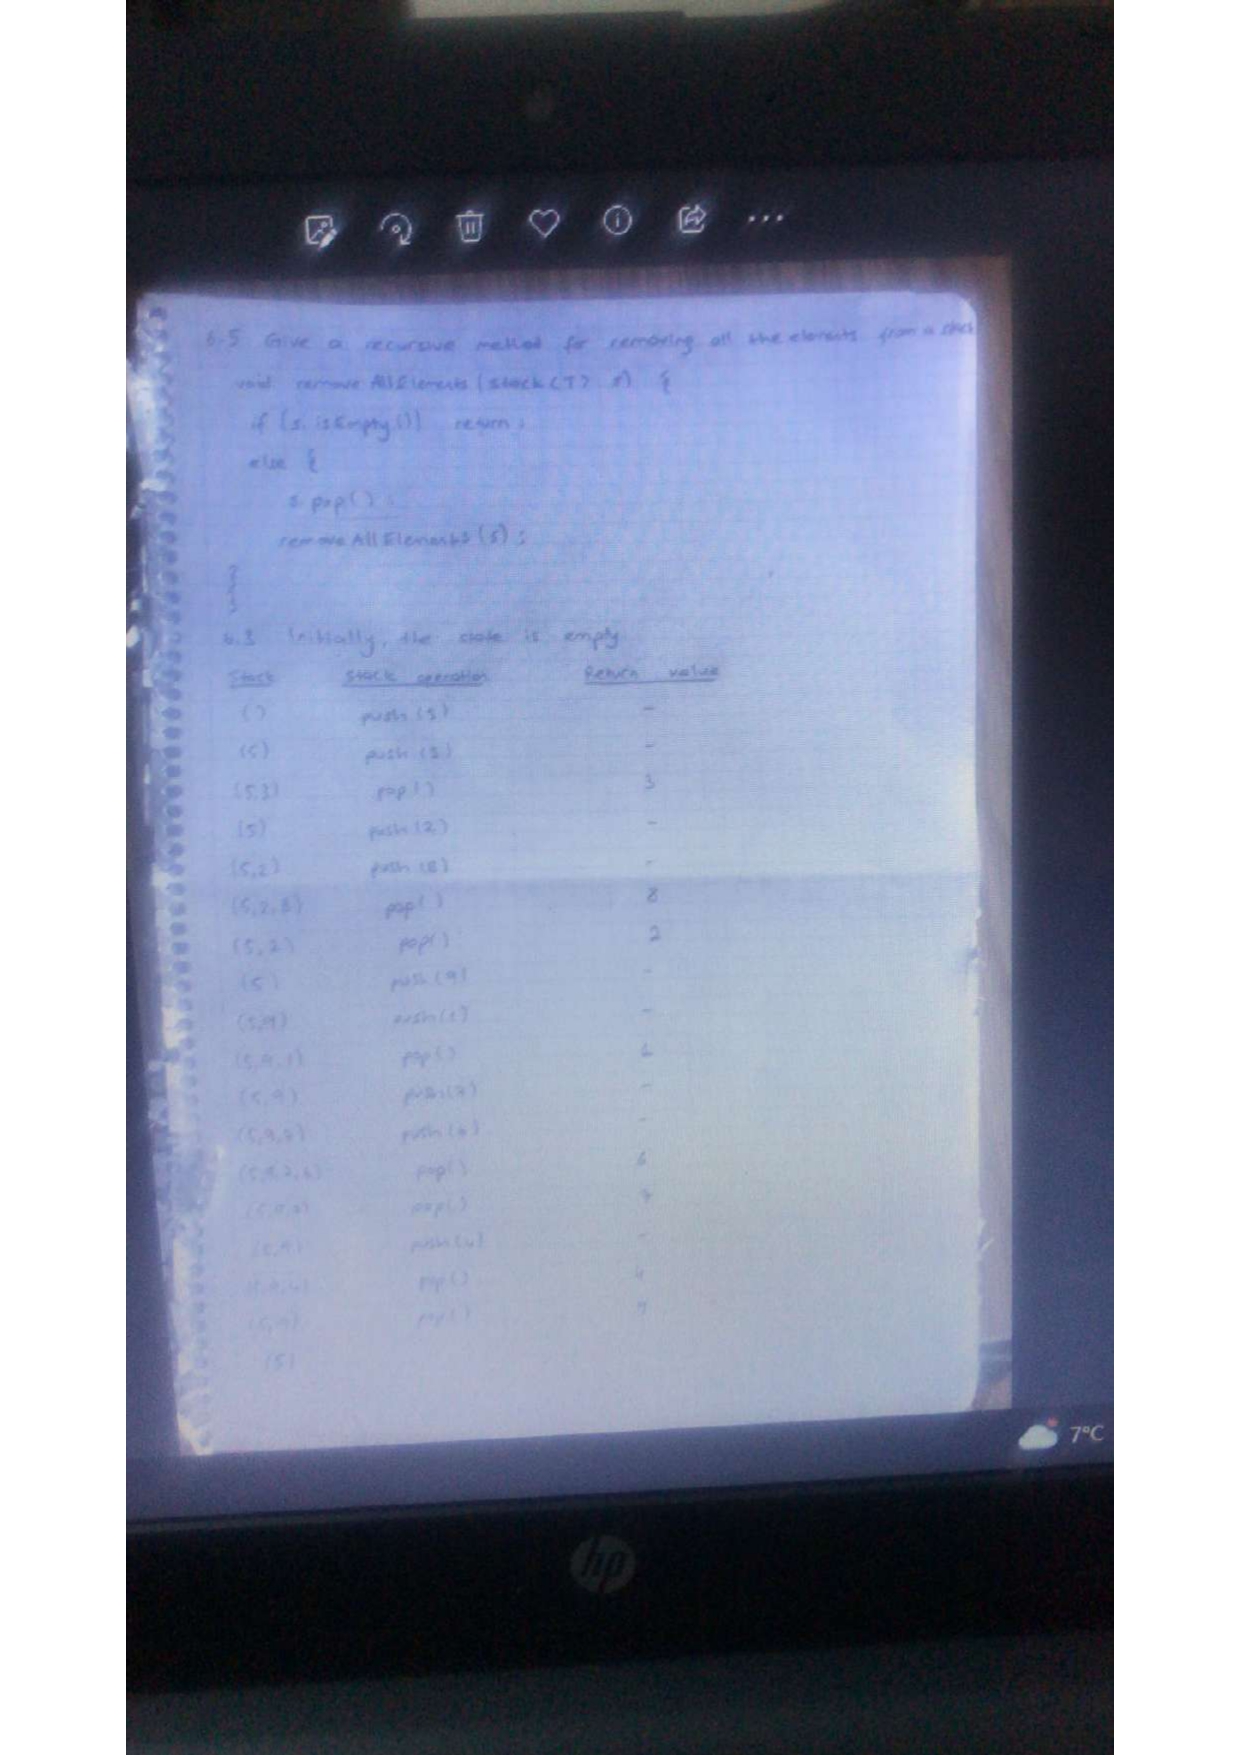 6.5 Give a recursive method for removing all the elements from a stack
void remove All Elements (Stack<T> s) {
if (s. isEmpty()) return ;
else {
s. pop() ;
remove All Elements (s) ;
}
}
6.3 Initially, the state is empty
Stack Stack operation Return value
() push (5) -
(5) push (3) -
(5,3) pop() 3
(5) push (2) -
(5,2) push (8) -
(5,2,8) pop() 8
(5,2) pop() 2
(5) push (9) -
(5,9) push(1) -
(5,9,1) pop() 1
(5,9) push(7) -
(5,9,7) push(6) -
(5,9,7,6) pop() 6
(5,9,7) pop() 7
(5,9) push(4) -
(5,9,4) pop() 4
(5,9) pop() 9
(5)
7°C
hp